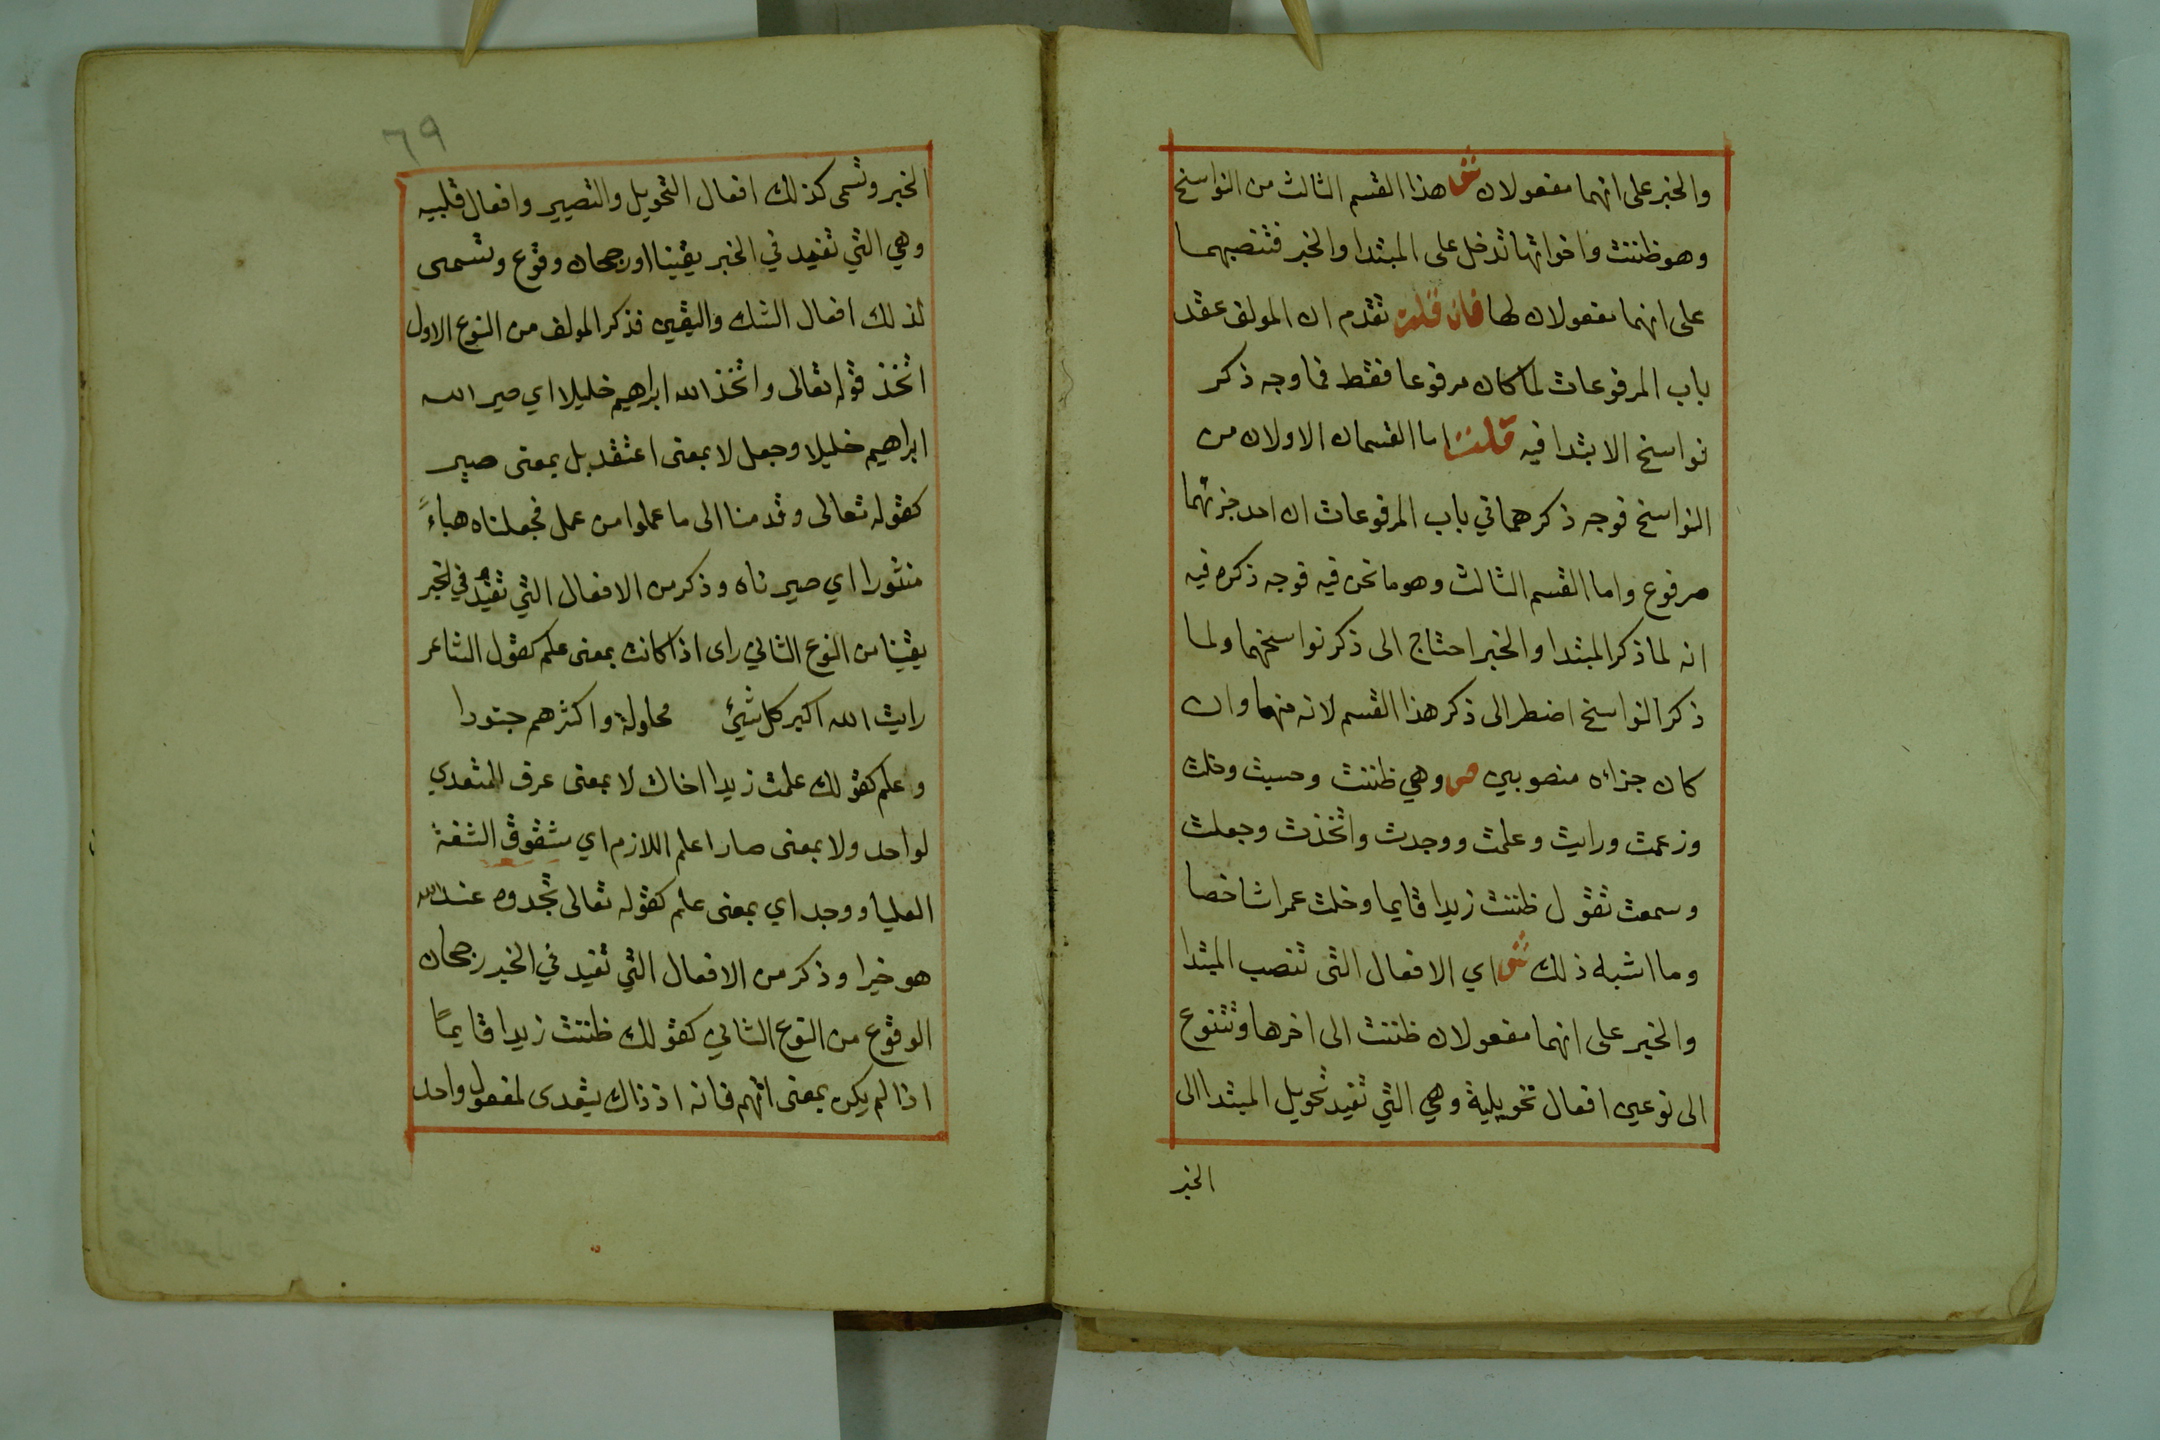 والخبر على انهما مفعولان ش هذا القسم الثالث من النواسخ
وهو ظننت واخواتها تدخل على المبتدا والخبر فتنصبهما
على انهما مفعولان لها فان قلت تقدم ان المولف عقد
باب المرفوعات لما كان مرفوعا فقط فما وجه ذكر
نواسخ الابتدا فيه قلت اما القسمان الاولان من
النواسخ فوجه ذكرهما في باب المرفوعات ان احد جزئيهما
مرفوع واما القسم الثالث وهو ما نحن فيه فوجه ذكره فيه
انه لما ذكر المبتدا والخبر احتاج الى ذكر نواسخهما ولما
ذكر النواسخ اضطر الى ذكر هذا القسم لانه منهما وان
كان جزاه منصوبين ص وهي ظننت وحسبت وخلت
وزعمت ورايت وعلمت ووجدت واتخذت وجعلت
وسمعت تقول ظننت زيدا قايما وخلت عمرا شاخصا
وما اشبه ذلك ش اي الافعال التى تنصب المبتدا
والخبر على انهما مفعولان ظننت الى اخرها وتتنوع
الى نوعين افعال تحويلية وهي التي تفيد تحويل المبتدا الى
الخبر
٦٩
الخبر وتسمى كذلك افعال التحويل والتصيير وافعال قلبيه
وهي التي تفيد في الخبر يقينا او رجحان وقوع وتسمى
لذلك افعال الشك واليقين فذكر المولف من النوع الاول
اتخذ قوله تعالى واتخذ الله ابراهيم خليلا اي صير الله
ابراهيم خليلا وجعل لا بمعنى اعتقد بل بمعنى صير
كقوله تعالى وقدمنا الى ما عملوا من عمل فجعلناه هباءً
منثورا اي صيرناه وذكر من الافعال التي تفيد في الخبر
يقينا من النوع الثاني راى اذا كانت بمعنى علم كقول الشاعر
رايت الله اكبر كل شيئ محاولة واكثرهم جنودا
وعلم كقولك علمت زيدا اخاك لا بمعنى عرف المتعدي
لواحد ولا بمعنى صار اعلم اللازم اي مشقوق الشفة
العليا ووجد اي بمعنى علم كقوله تعالى تجدوه عند الله
هو خيرا وذكر من الافعال التي تفيد في الخبر رجحان
الوقوع من النوع الثاني كقولك ظننت زيدا قايماً
اذا لم يكن بمعنى اتهم فانه اذ ذاك يتعدى لمفعول واحد